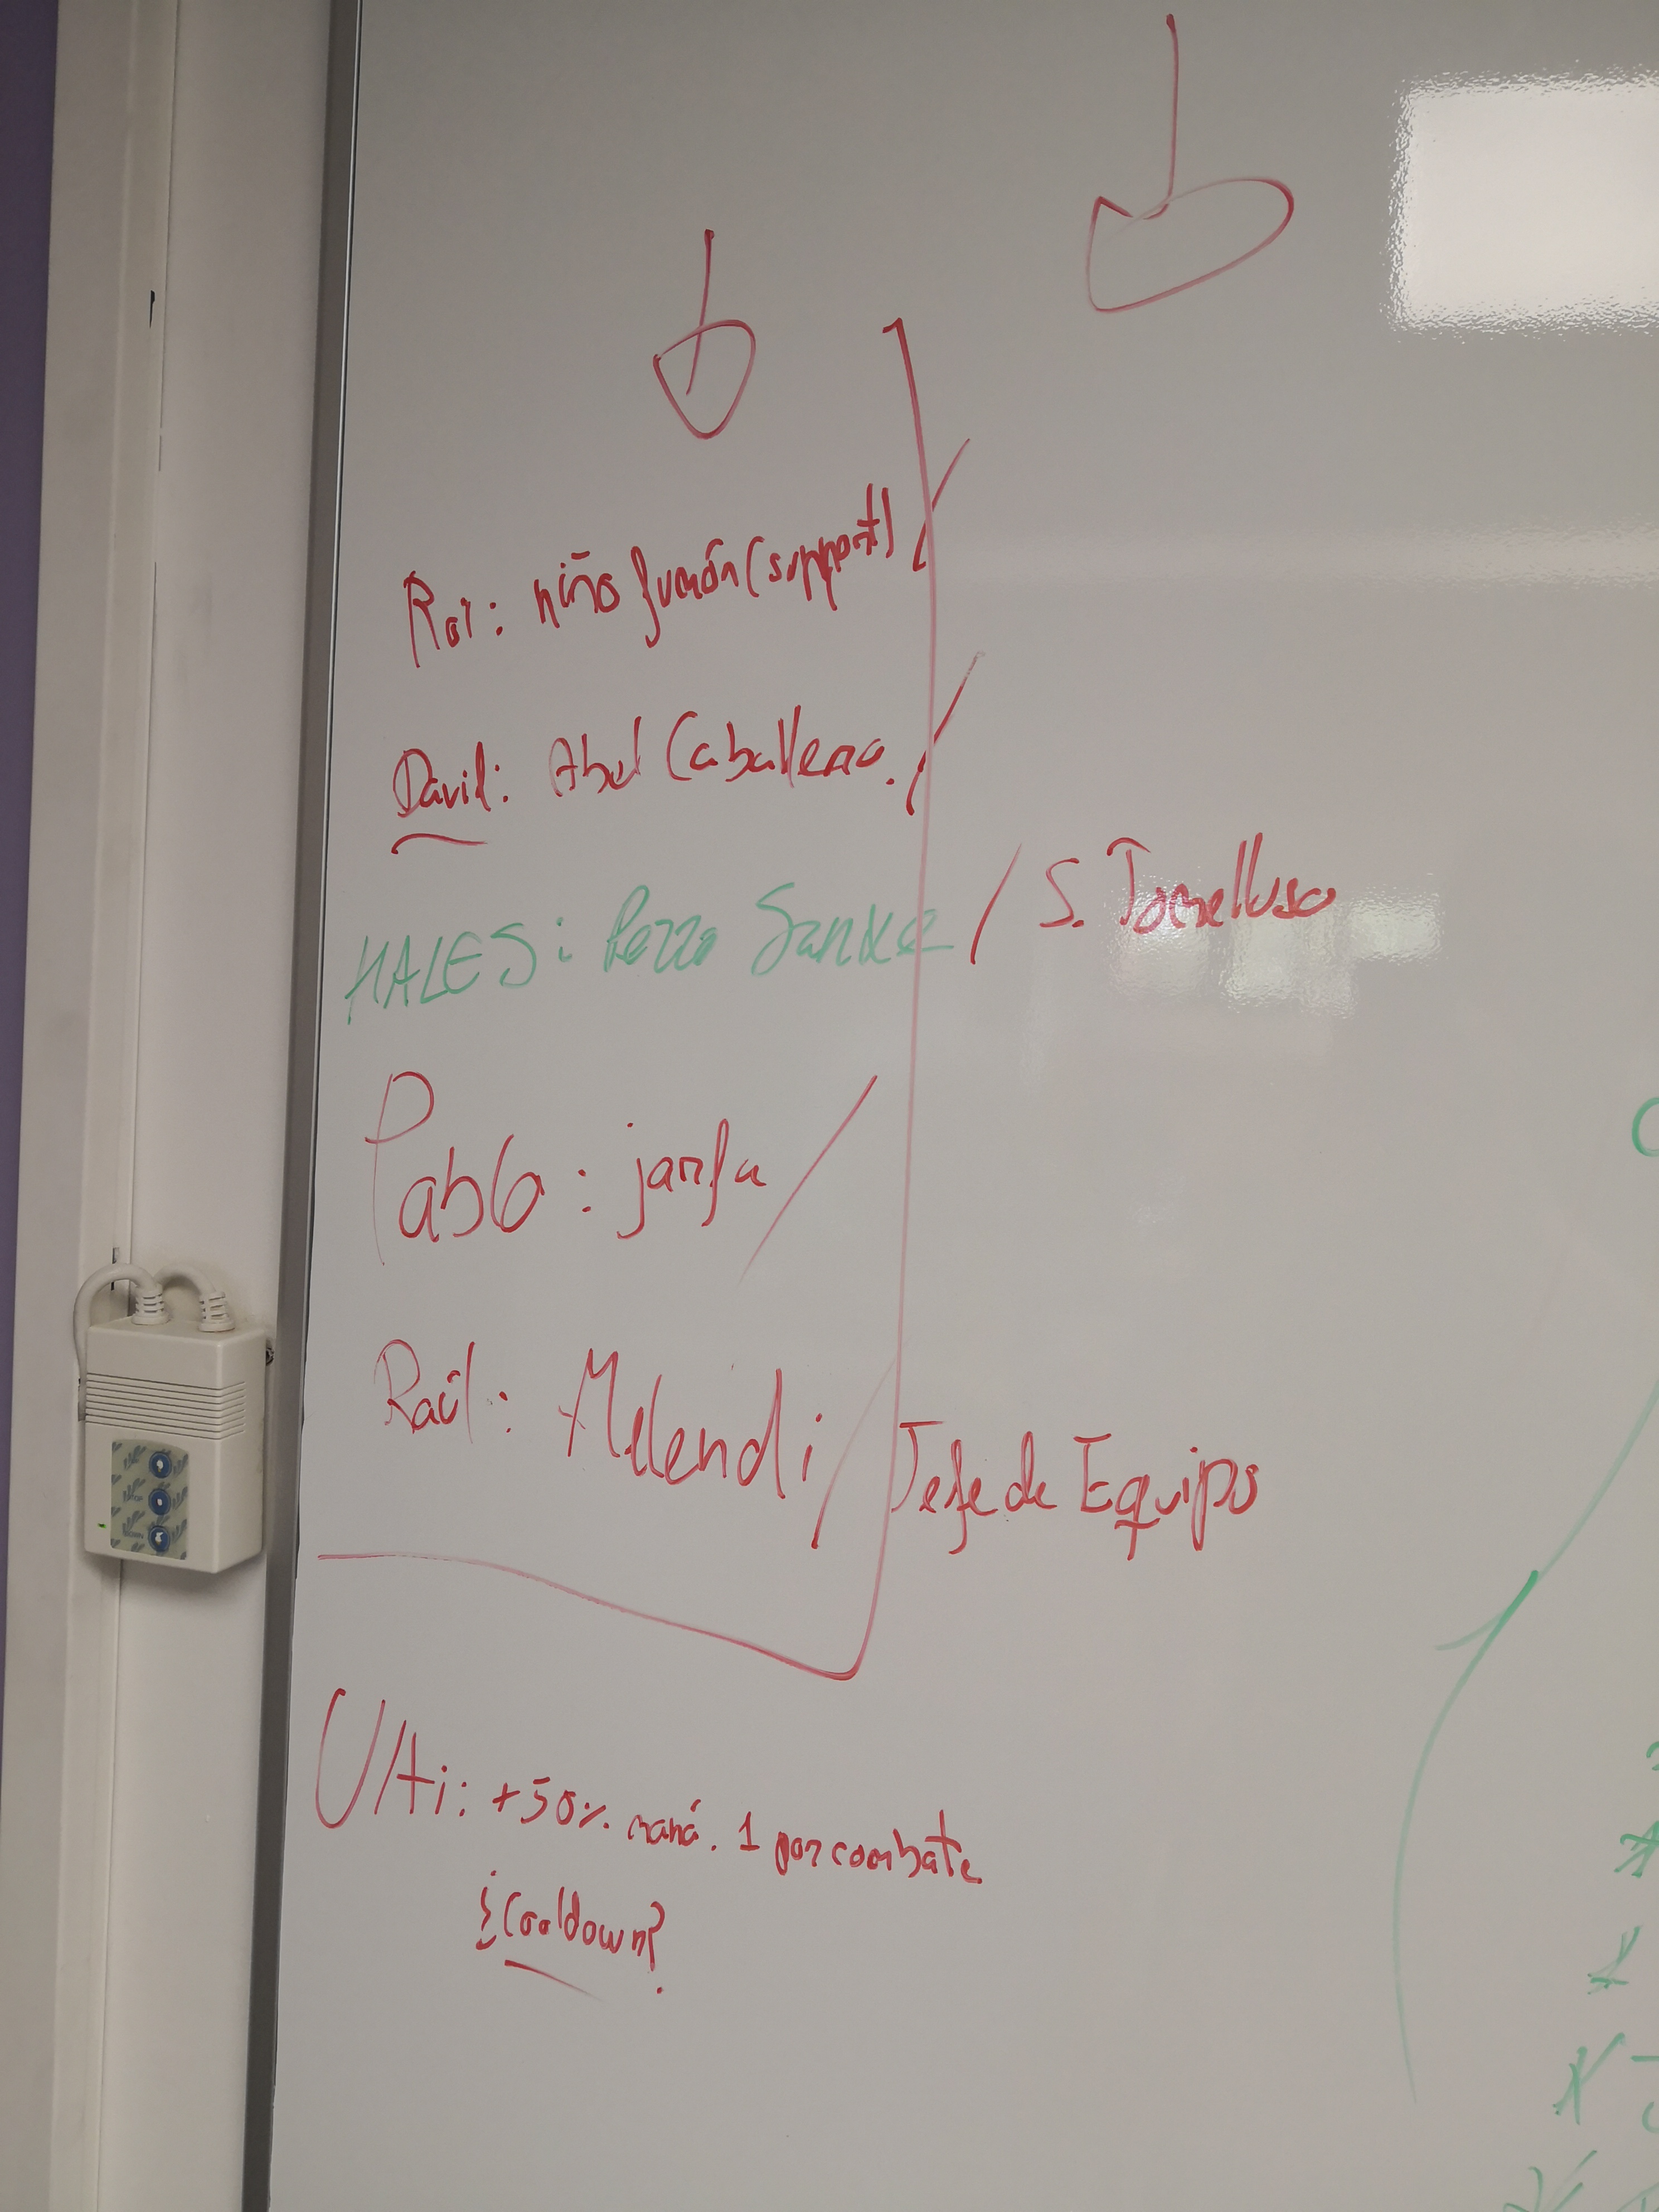 Roi: niño furón (support) /
David: Abel Caballero. /
HALES: Perro Sanxe / S. Tomelloso
Pablo: janfa /
Raúl: Melendi / Jefe de Equipo
Ulti: +50% maná. 1 por combate
¿Cooldown?